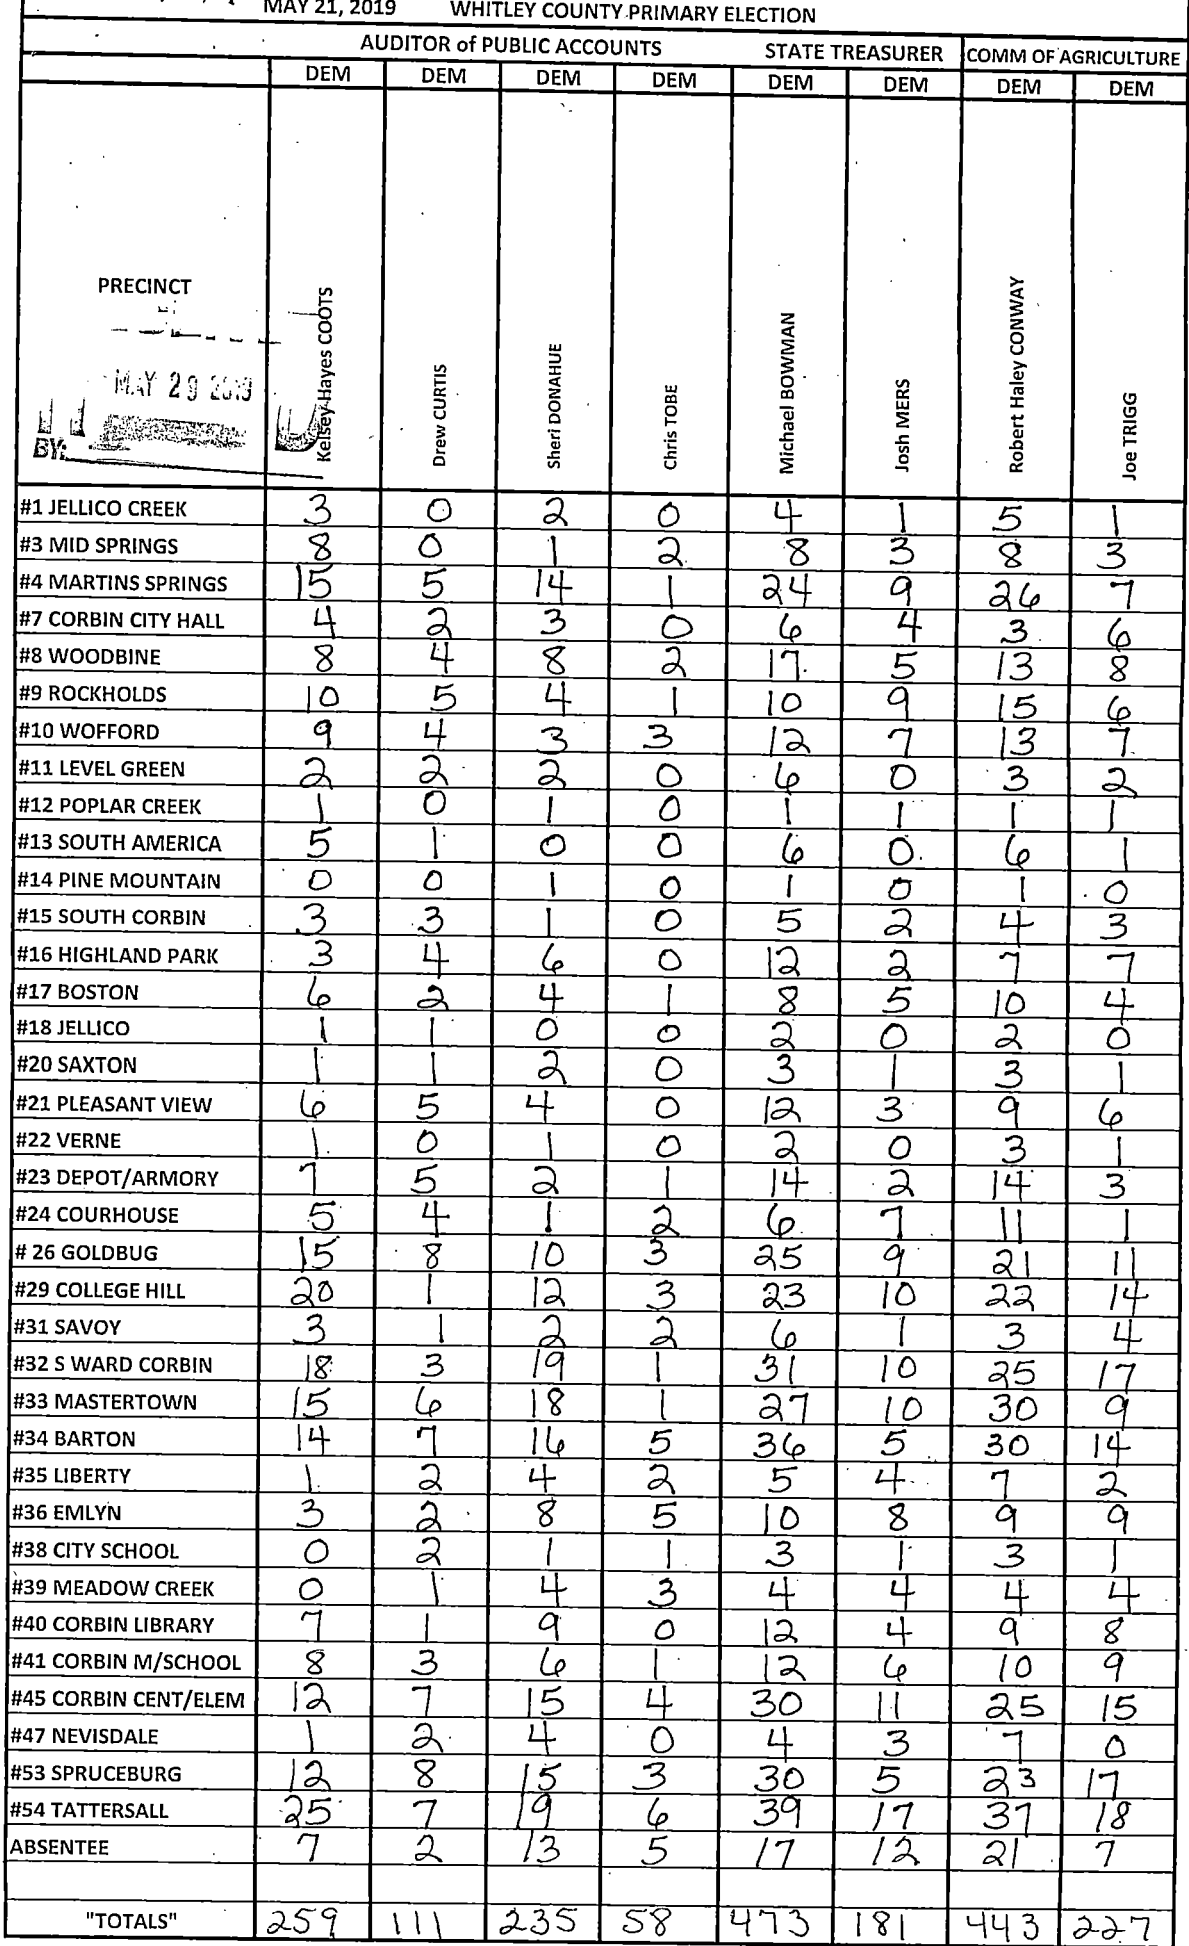 MAY 21, 2019 WHITLEY COUNTY PRIMARY ELECTION
AUDITOR of PUBLIC ACCOUNTS STATE TREASURER COMM OF AGRICULTURE
DEM DEM DEM DEM DEM DEM DEM DEM
PRECINCT Kelsey Hayes COOTS Drew CURTIS Sheri DONAHUE Chris TOBE Michael BOWMAN Josh MERS Robert Haley CONWAY Joe TRIGG
MAY 29 2019
BY:
#1 JELLICO CREEK 3 0 2 0 4 1 5 1
#3 MID SPRINGS 8 0 1 2 8 3 8 3
#4 MARTINS SPRINGS 15 5 14 1 24 9 26 7
#7 CORBIN CITY HALL 4 2 3 0 6 4 3 6
#8 WOODBINE 8 4 8 2 17 5 13 8
#9 ROCKHOLDS 10 5 4 1 10 9 15 6
#10 WOFFORD 9 4 3 3 12 7 13 7
#11 LEVEL GREEN 2 2 2 0 6 0 3 2
#12 POPLAR CREEK 1 0 1 0 1 1 1 1
#13 SOUTH AMERICA 5 1 0 0 6 0 6 1
#14 PINE MOUNTAIN 0 0 1 0 1 0 1 0
#15 SOUTH CORBIN 3 3 1 0 5 2 4 3
#16 HIGHLAND PARK 3 4 6 0 12 2 7 7
#17 BOSTON 6 2 4 1 8 5 10 4
#18 JELLICO 1 1 0 0 2 0 2 0
#20 SAXTON 1 1 2 0 3 1 3 1
#21 PLEASANT VIEW 6 5 4 0 12 3 9 6
#22 VERNE 1 0 1 0 2 0 3 1
#23 DEPOT/ARMORY 7 5 2 1 14 2 14 3
#24 COURHOUSE 5 4 1 2 6 7 11 1
# 26 GOLDBUG 15 8 10 3 25 9 21 11
#29 COLLEGE HILL 20 1 12 3 23 10 22 14
#31 SAVOY 3 1 2 2 6 1 3 4
#32 S WARD CORBIN 18 3 19 1 31 10 25 17
#33 MASTERTOWN 15 6 18 1 27 10 30 9
#34 BARTON 14 7 16 5 36 5 30 14
#35 LIBERTY 1 2 4 2 5 4 7 2
#36 EMLYN 3 2 8 5 10 8 9 9
#38 CITY SCHOOL 0 2 1 1 3 1 3 1
#39 MEADOW CREEK 0 1 4 3 4 4 4 4
#40 CORBIN LIBRARY 7 1 9 0 12 4 9 8
#41 CORBIN M/SCHOOL 8 3 6 1 12 6 10 9
#45 CORBIN CENT/ELEM 12 7 15 4 30 11 25 15
#47 NEVISDALE 1 2 4 0 4 3 7 0
#53 SPRUCEBURG 12 8 15 3 30 5 23 17
#54 TATTERSALL 25 7 19 6 39 17 37 18
ABSENTEE 7 2 13 5 17 12 21 7
"TOTALS" 259 111 235 58 473 181 443 227